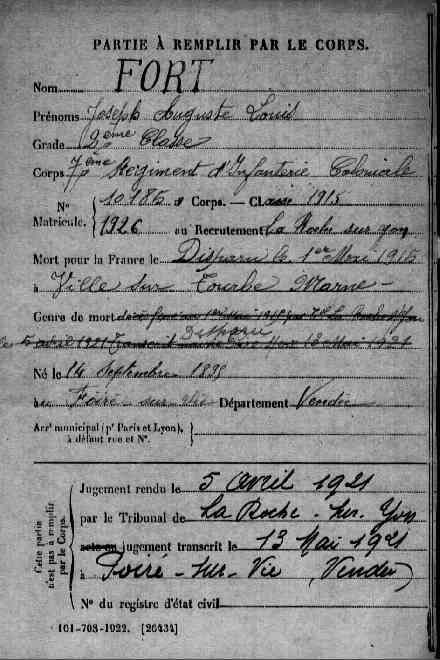 PARTIE À REMPLIR PAR LE CORPS.
Nom FORT
Prénoms Joseph Auguste Louis
Grade 2ème Classe
Corps 7ème Régiment d'Infanterie Coloniale
N° Matricule. { 10985 au Corps. — Classe 1915
1926 au Recrutement La Roche sur yon
Mort pour la France le Disparu le 1er Mai 1915
à Ville sur Tourbe Marne
Genre de mort
Disparu
5 avril 1921 Transcrit 13 Mai 1921
Né le 14 Septembre 1895
à Poiré-sur-Vie Département Vendée
Arrt municipal (pr Paris et Lyon), à défaut rue et N°. }
Cette partie n'est pas à remplir par le Corps.
Jugement rendu le 5 avril 1921
par le Tribunal de La Roche-sur-Yon
acte ou jugement transcrit le 13 Mai 1921
à Poiré-sur-Vie (Vendée)
N° du registre d'état civil
161-708-1922. [26434]